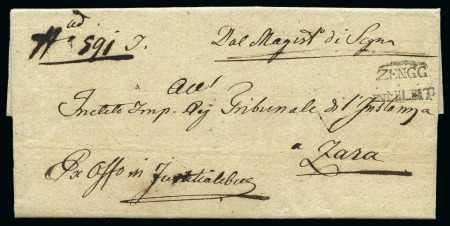 ad
N° 591 J.
Dal Magist° di Segna
ZENGG
All'
Inclito Imp. Rg Tribunale di I Instanza
a
Zara
Ex Offo in Justitialibus